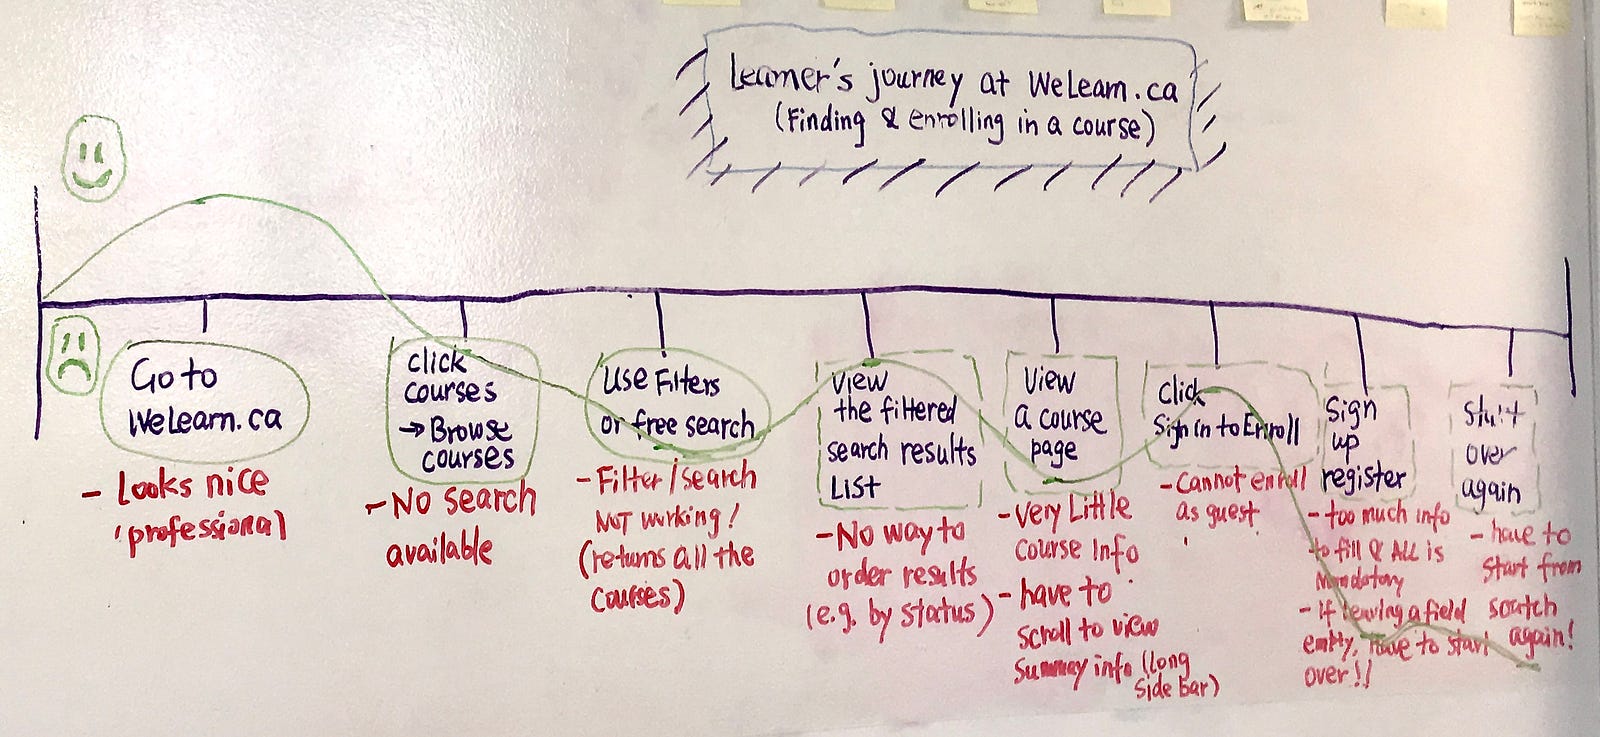 Learner's journey at WeLearn.ca
(Finding & enrolling in a course)
Go to
WeLearn.ca
- Looks nice
professional
click
courses
→ Browse
courses
- No search
available
Use Filters
or free search
- Filter/search
NOT working!
(returns all the
courses)
View
the filtered
search results
List
- No way to
order results
(e.g. by status)
View
a course
page
- Very Little
Course Info
- have to
scroll to view
Summary info (long
side bar)
Click
Sign in to Enroll
- Cannot enroll
as guest
Sign
up
register
- too much info
to fill & ALL is
Mandatory
- if leaving a field
empty, have to start
over!!
Start
over
again
- have to
start from
scratch
again!